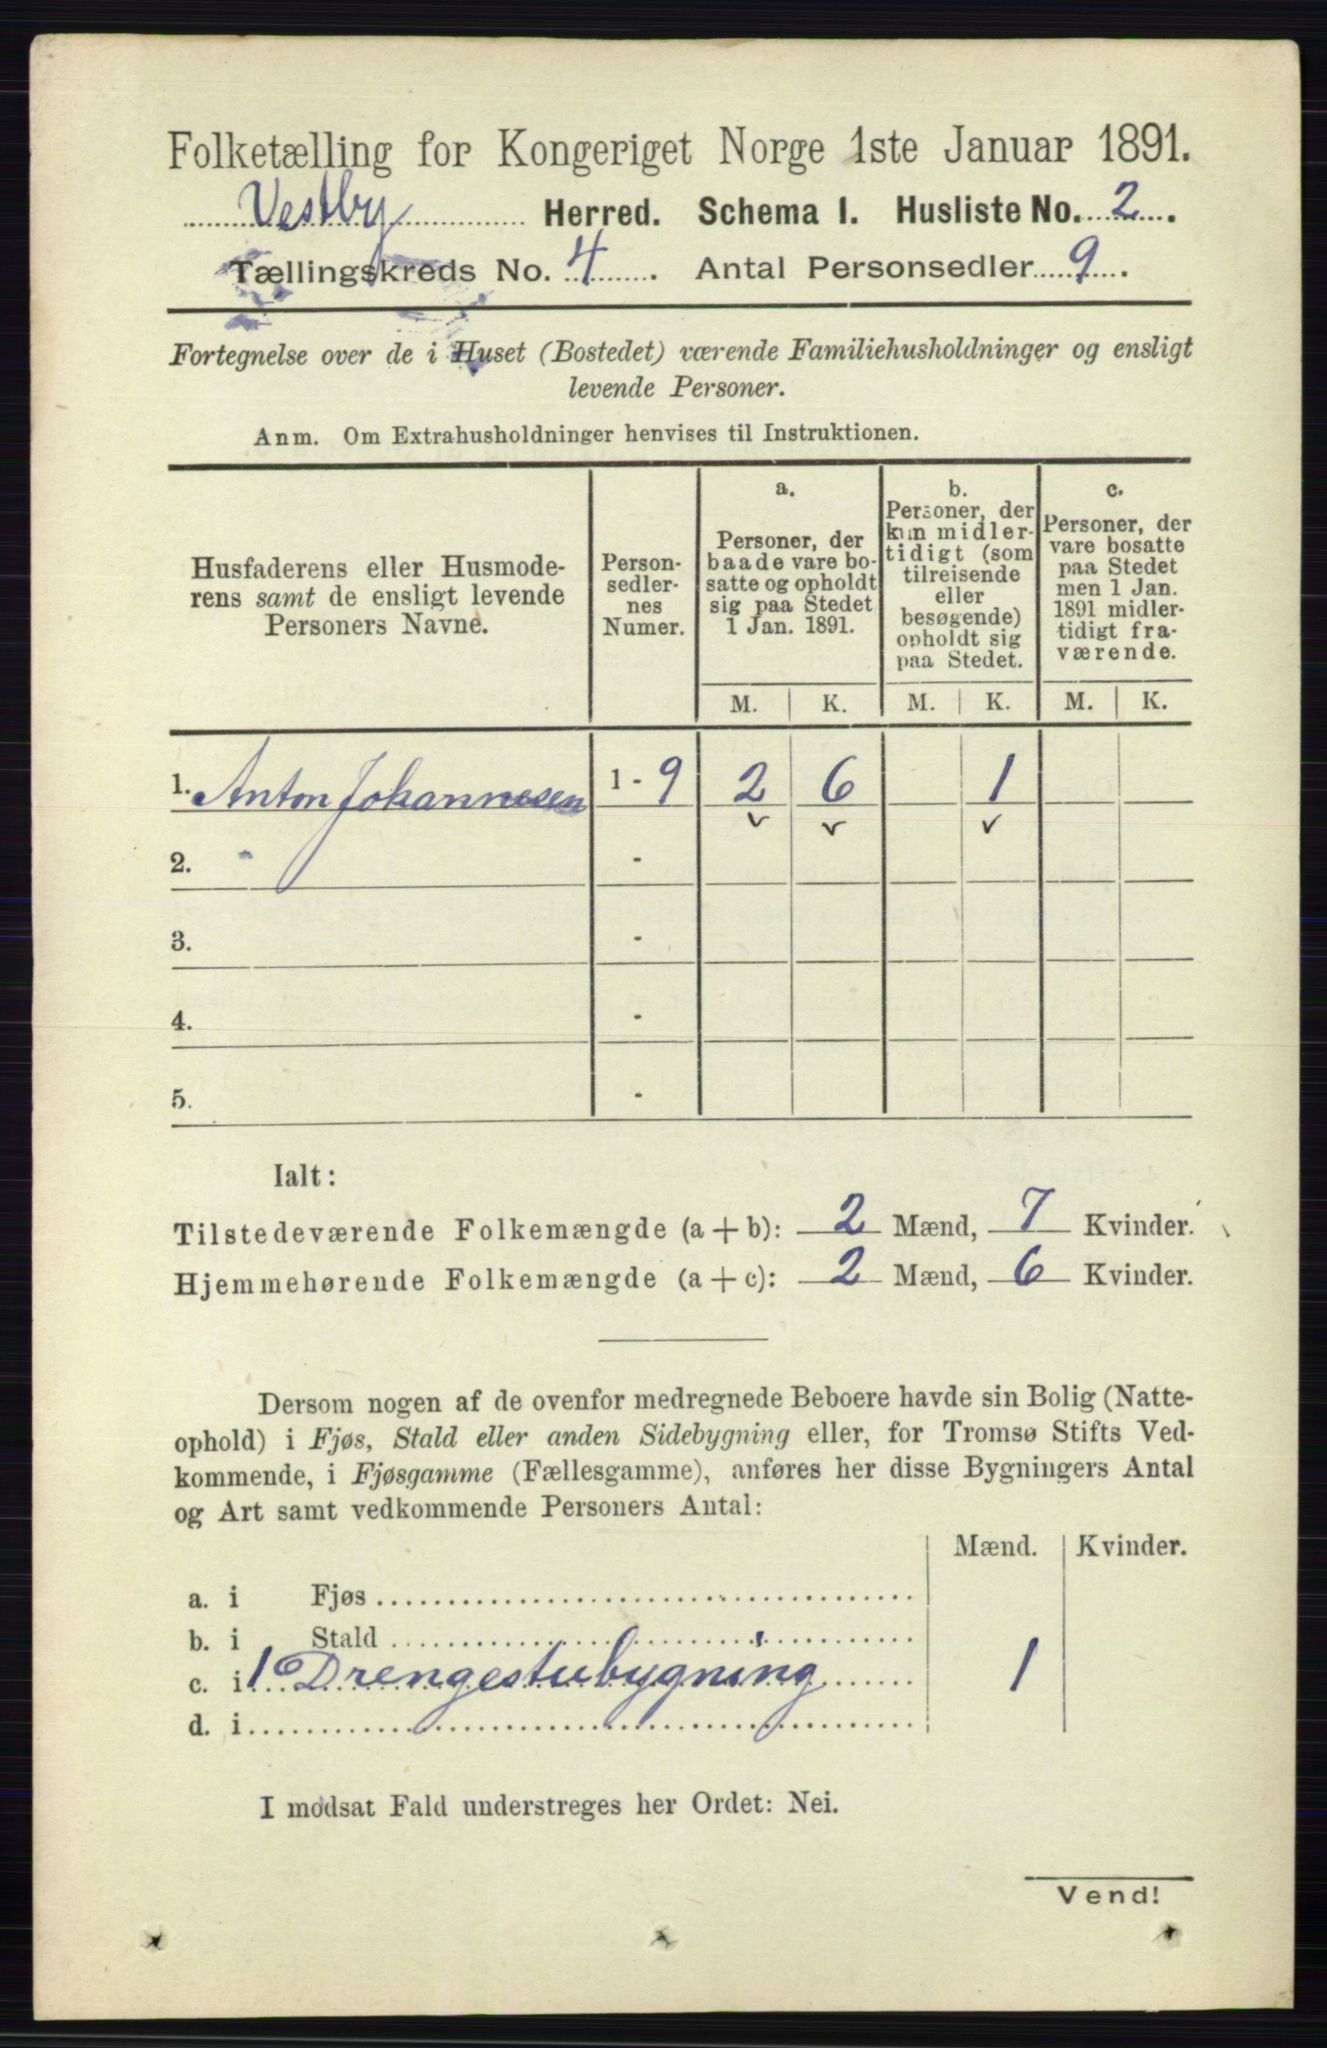 Folketælling for Kongeriget Norge 1ste Januar 1891.
Vestby Herred. Schema I. Husliste No. 2.
Tællingskreds No. 4. Antal Personsedler 9.
Fortegnelse over de i Huset (Bostedet) værende Familiehusholdninger og ensligt
levende Personer.
Anm. Om Extrahusholdninger henvises til Instruktionen.
Husfaderens eller Husmode-
rens samt de ensligt levende
Personers Navne.
Person-
sedler-
nes
Numer.
a.
Personer, der
baade vare bo-
satte og opholdt
sig paa Stedet
1 Jan. 1891.
b.
Personer, der
kun midler-
tidigt (som
tilreisende
eller
besøgende)
opholdt sig
paa Stedet.
c.
Personer, der
vare bosatte
paa Stedet
men 1 Jan.
1891 midler-
tidigt fra-
værende.
M. K. M. K. M. K.
1. Anton Johannesen 1 - 9 2 6 1
2. -
3. -
4. -
5. -
Ialt:
Tilstedeværende Folkemængde (a + b): 2 Mænd, 7 Kvinder.
Hjemmehørende Folkemængde (a + c): 2 Mænd, 6 Kvinder.
Dersom nogen af de ovenfor medregnede Beboere havde sin Bolig (Natte-
ophold) i Fjøs, Stald eller anden Sidebygning eller, for Tromsø Stifts Ved-
kommende, i Fjøsgamme (Fællesgamme), anføres her disse Bygningers Antal
og Art samt vedkommende Personers Antal:
Mænd. Kvinder.
a. i Fjøs
b. i Stald
c. i 1 Drengestubygning 1
d. i
I modsat Fald understreges her Ordet: Nei.
Vend!